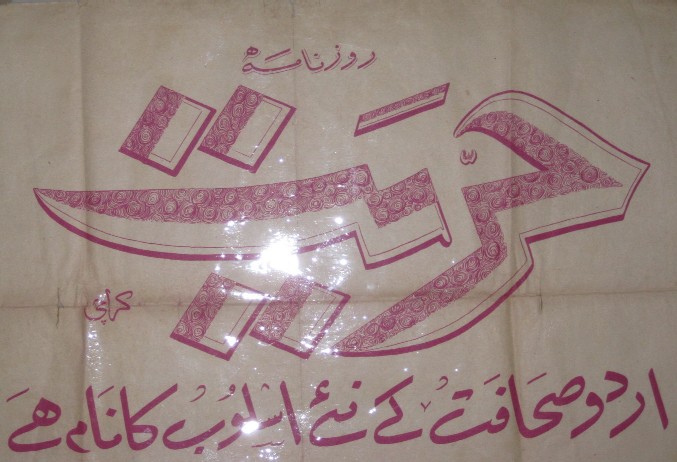 روزنامہ
حریت
کراچی
اردو صحافت کے نئے اسلوب کا نام ہے